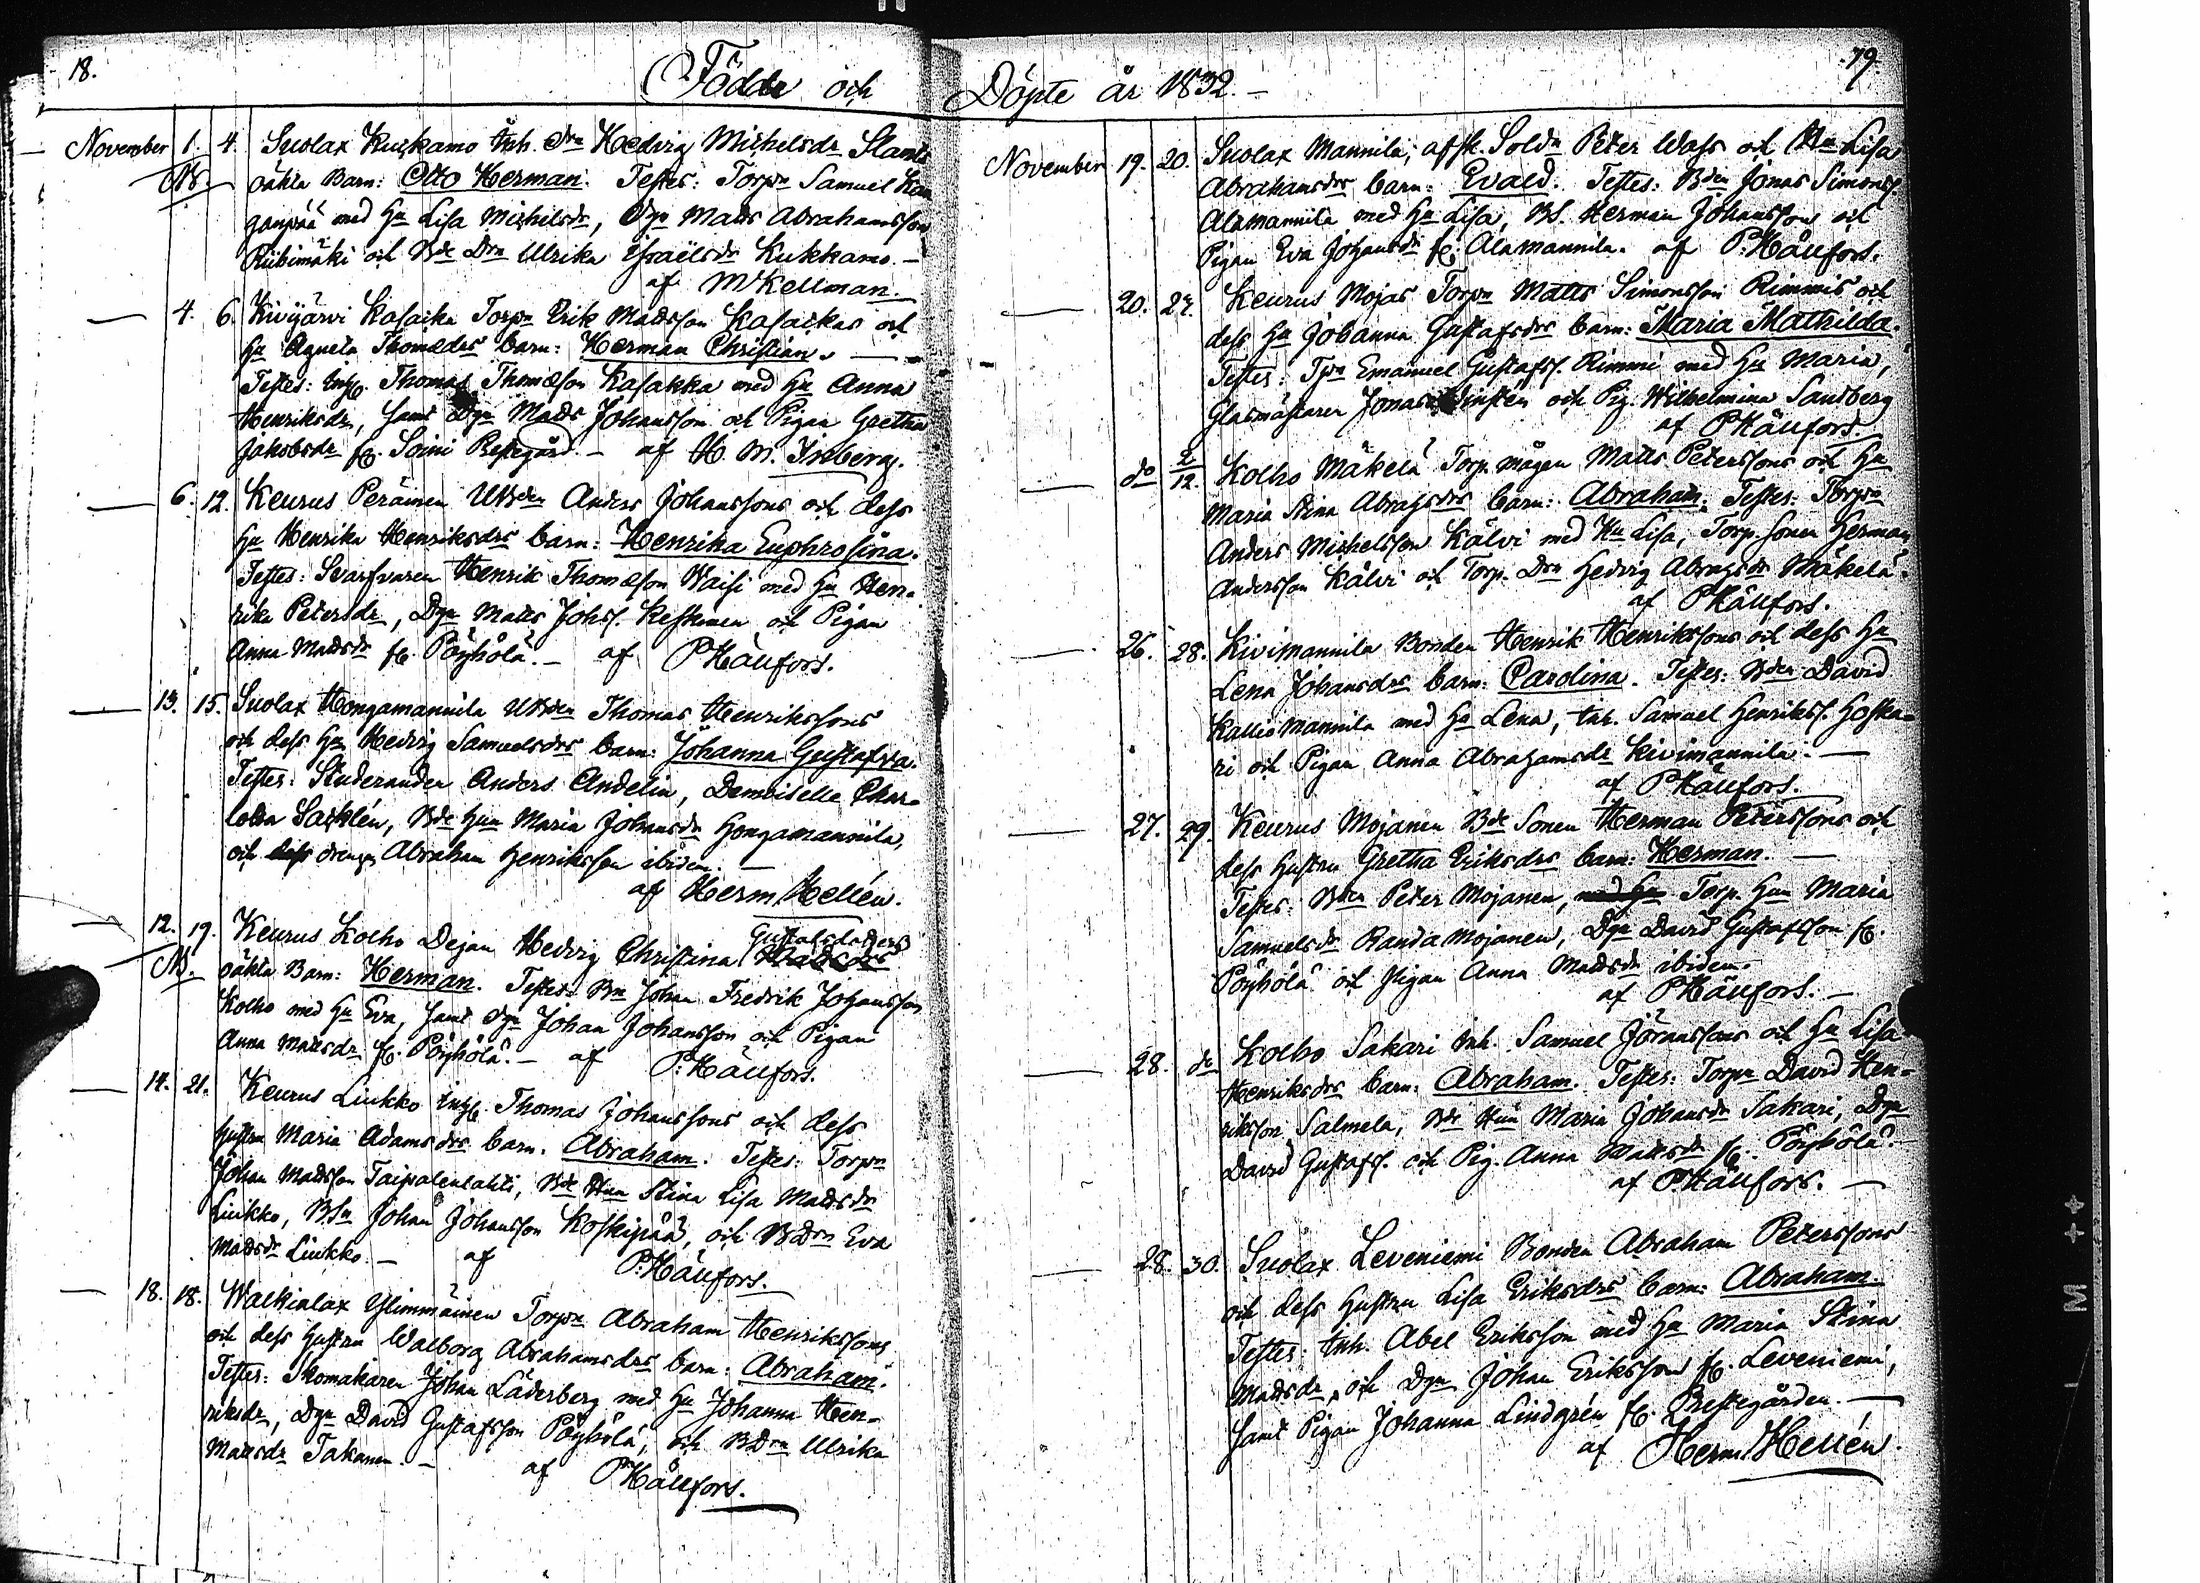 18.
Födde och
November 1. 4. Suolax Kukkamo Inh. Drn Hedvig Michelsdr
NB. oäkta Barn: Otto Herman. Testes: Torpn Samuel
ganpää med Hu Lisa Michelsdr, Dgn Matts Abrahamsson
Riihimäki och Bde Drn Ulrika Israëlsdr Kukkamo. —
af M Kellman.
— 4. 6. Kivijärvi Kasacka Torpn Erik Mattsson Kasackas och
Hu Agneta Thomædrs barn: Herman Christian. —
Testes: Inhs. Thomas Thomæson Kasakka med Hu Anna
Henriksdr, samt Dgn Matts Johansson och Pigan Gretha
Jakobsdr fr. Soini Prestegård. — af H. M. Inberg.
— 6. 12. Keurus Peräinen UtBden Anders Johanssons och dess
Hu Henrika Henriksdrs barn: Henrika Euphrosina.
Testes: Svarfvaren Henrik Thomæson Waisi med Hu Hen-
rika Petersdr, Dgn Matts Johss. Keskinen och Pigan
Anna Mattsdr fr. Pöyhölä. — af P. Hällfors.
— 13. 15. Suolax Hongamannila UtBden Thomas Henrikssons
och dess Hu Hedvig Samuelsdrs barn: Johanna Gustafva.
Testes: Studeranden Anders Andelin, Demoiselle Char-
lotta Sacklén, Bde Hun Maria Johansdr Hongamannila,
och dess drengen Abraham Henriksson ibidem. —
af Herm. Hellén.
Gustafsdotters
12. 19. Keurus Kolho Dejan Hedvig Christina
NB. oäkta Barn: Herman. Testes: Bn Johan Fredrik Johansson
Kolho med Hu Eva, samt Dgn Johan Johansson och Pigan
Anna Mattsdr fr. Pöyhölä. — af P. Hällfors.
— 14. 21. Keurus Liukko Inhs. Thomas Johanssons och dess
hustru Maria Adamsdrs barn. Abraham. Testes: Torpn
Johan Mattsson Taipalenlahti, Bde Hun Stina Lisa Mattsdr
Liukko, BSn Johan Johansson Koskipää, och BDrn Eva
Mattsdr Liukko. — af P. Hällfors.
— 18. 18. Walkialax Ylimmäinen Torpn Abraham Henrikssons
och dess hustru Walborg Abrahamsdrs barn: Abraham.
Testes: Skomakaren Johan Läderberg med Hu Johanna Hen-
riksdr, Dgn David Gustafsson Pöyhölä, och BDrn Ulrika
Mattsdr Takanen. — af P Hällfors.
19.
Döpte år 1832. —
November 19. 20. Suolax Mannila, afsk. Soldn Peter Wass och Hu Lisa
Abrahamsdrs barn: Evald. Testes: Bden Jonas Simonss.
Alamannila med Hu Lisa, BS. Herman Johansson och
Pigan Eva Johansdr fr. Alamannila. af P. Hällfors.
— 20. 27. Keurus Mojas Torpn Matts Simonsson Rimmis och
dess Hu Johanna Gustafsdrs barn: Maria Mathilda.
Testes: Tpn Emanuel Gustafss. Rimmi med Hu Maria,
Glasmästaren Jonas och Pig. Wilhelmina Sandberg
af P Hällfors
— do 2/12. Kolho Mäkelä Torp. mågen Matts Peterssons och Hu
Maria Stina Abrahsdrs barn: Abraham. Testes: Torpn
Anders Michelsson Kälvi med Hu Lisa, Torp. sonen Herman
Andersson Kälvi och Torp. Drn Hedvig Abrahsdr Mäkelä.
af P Hällfors.
— 26. 28. Kivimannila Bonden Henrik Henrikssons och dess Hu
Lena Johansdrs barn: Carolina. Testes: Bden David
Kalliomannila med Hu Lena, Inh. Samuel Henrikss. Hoska-
ri och Pigan Anna Abrahamsdr Kivimannila. —
af P Hällfors.
— 27. 29. Keurus Mojanen Bde Sonen Herman Peterssons och
dess Hustru Gretha Eriksdrs barn: Herman. —
Testes: Bden Peter Mojanen, med Hu Torp. Hun Maria
Samuelsdr Randa Mojanen, Dgn David Gustafsson fr.
Pöyhölä och Pigan Anna Mattsdr ibidem.
af P Hällfors. —
— 28. do Kolho Sakari Inh. Samuel Jöranssons och Hu Lisa
Henriksdrs barn: Abraham. Testes: Torpn David Hen-
riksson Salmela, Bde Hun Maria Johansdr Sakari, Dgn
David Gustafs. och Pig. Anna Mattsdr fr. Pöyhölä. —
af P. Hällfors. —
— 28. 30. Suolax Leveniemi Bonden Abraham Peterssons
och dess Hustru Lisa Eriksdrs barn: Abraham.
Testes: Inh. Abel Eriksson med Hu Maria Stina
Mattsdr, och Dgn Johan Eriksson fr. Leveniemi,
samt Pigan Johanna Lindgrén fr. Prestegården. —
af Herm. Hellén.
M